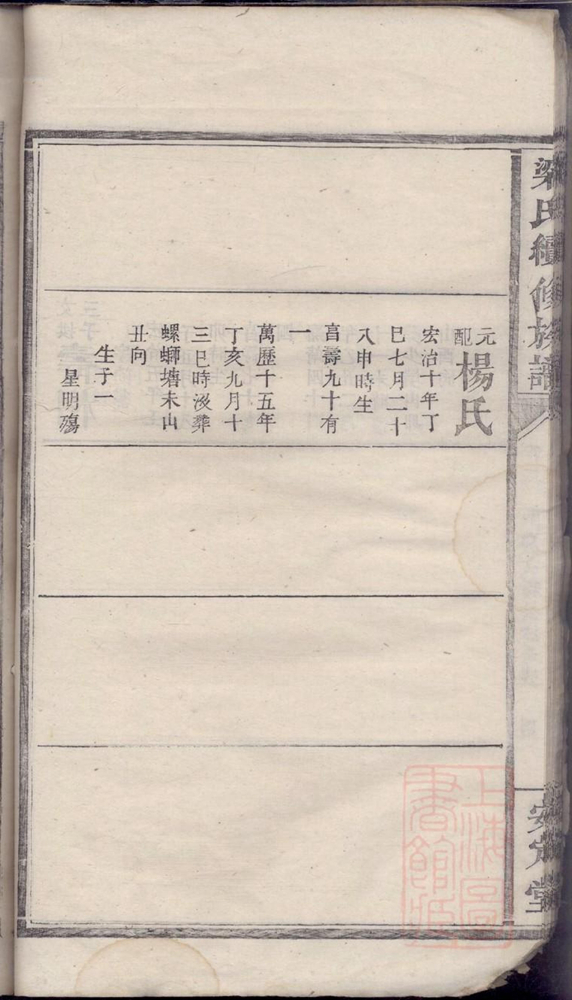 梁氏續修族譜
安定堂
元配楊氏
宏治十年丁
巳七月二十
八申時生
享壽九十有
一
萬歷十五年
丁亥九月十
三巳時沒葬
螺螄塘未山
丑向
生子一
星明殤
上海圖書館藏